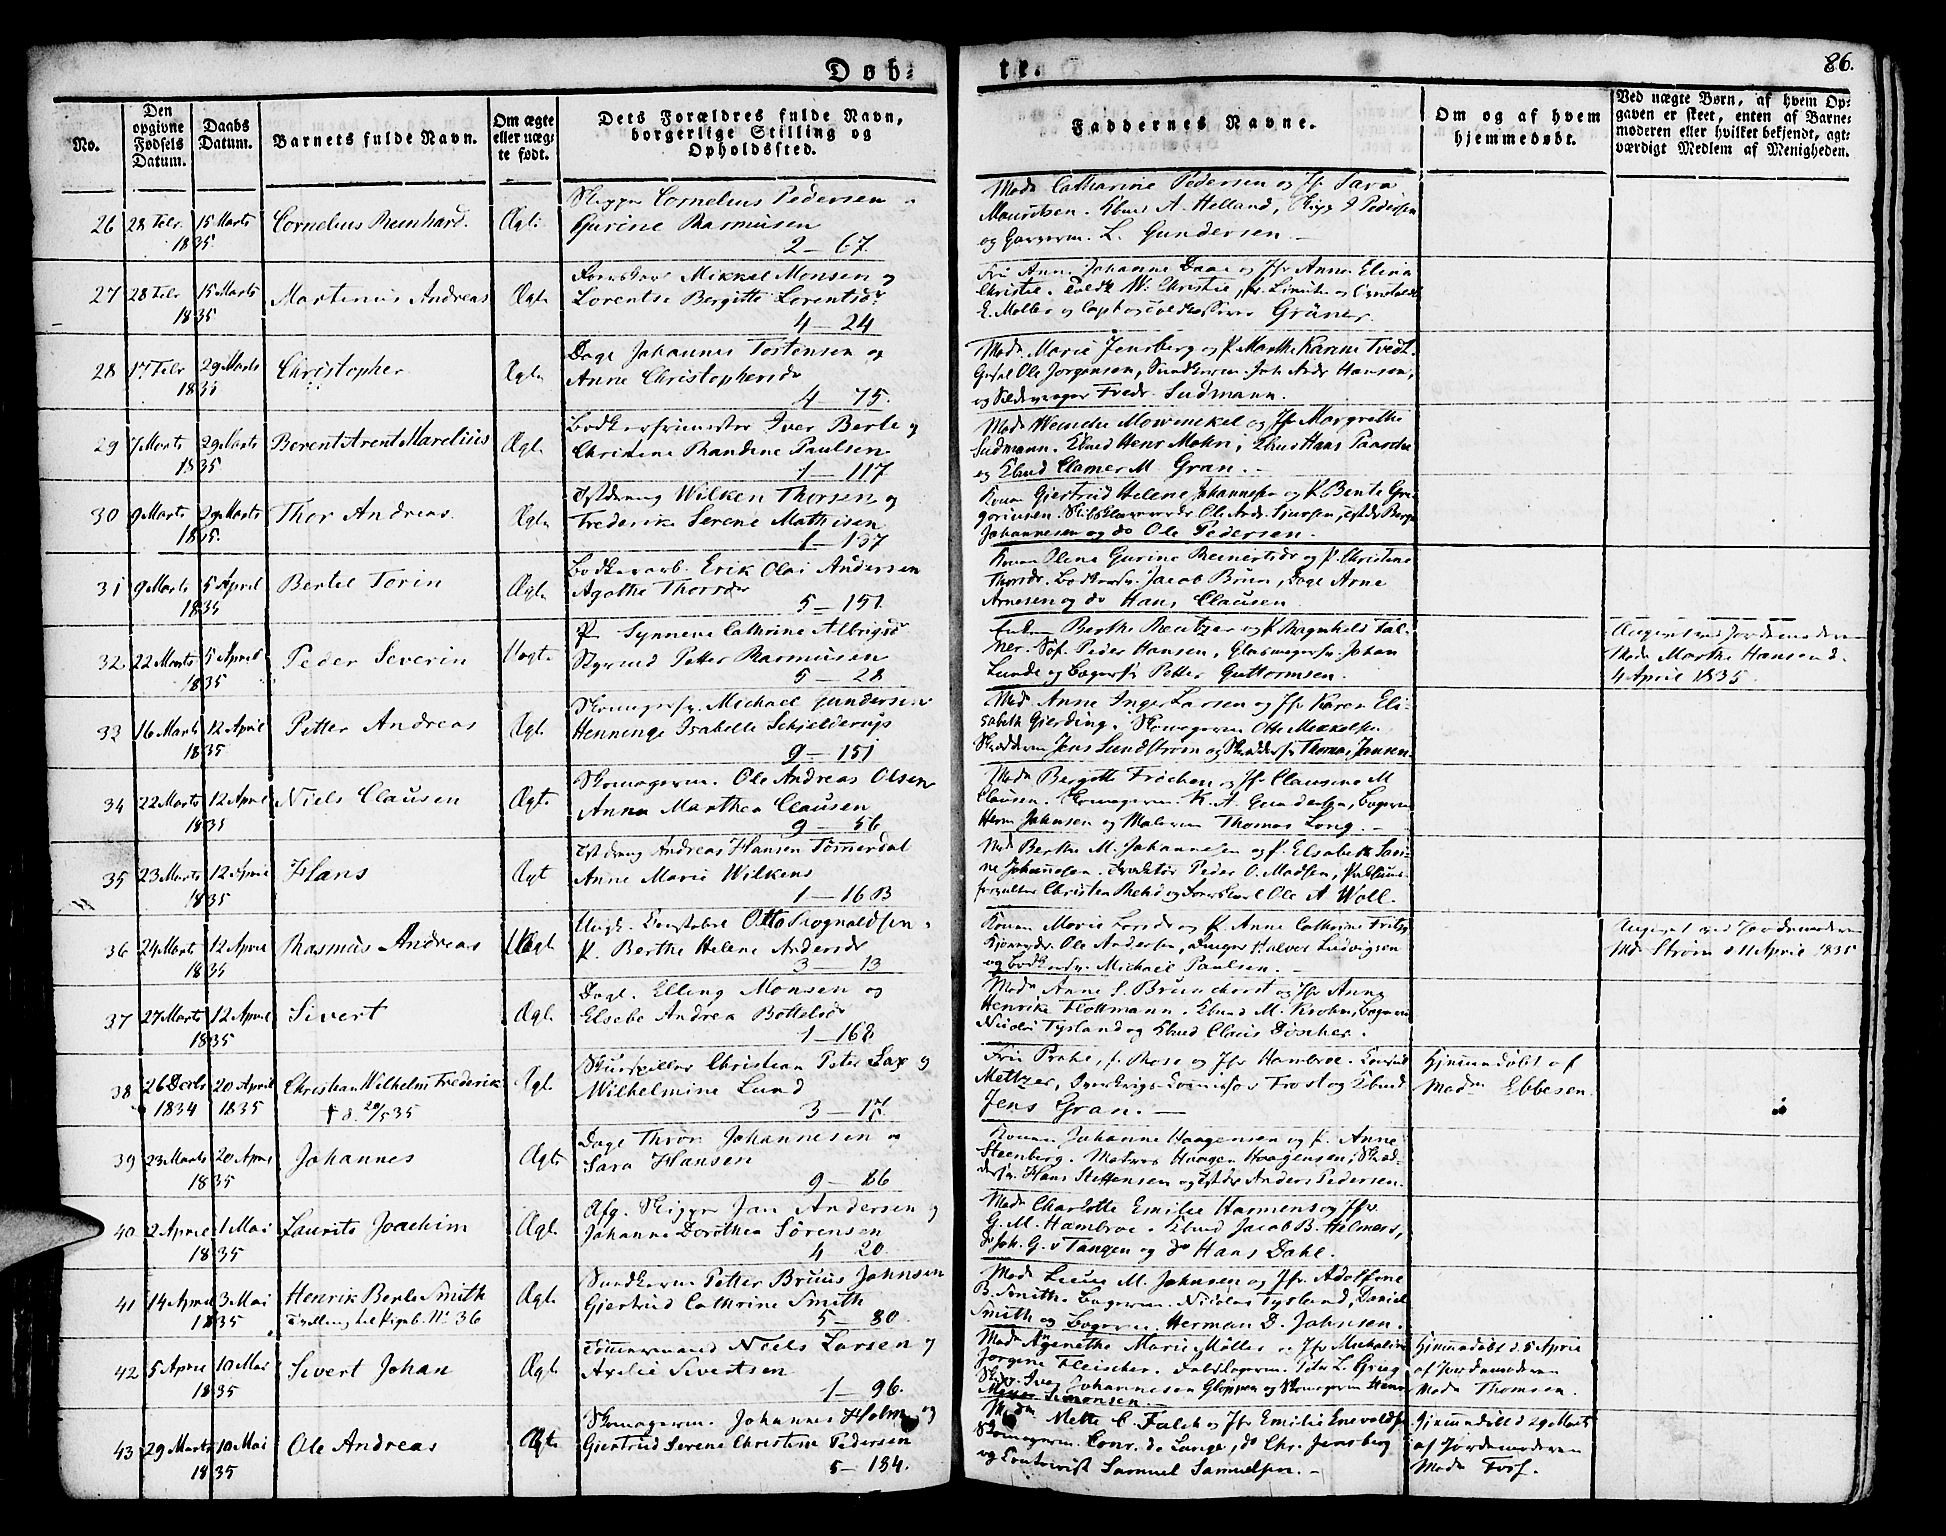 Døb-
te.
86.
No.
Den opgivne Fødsels Datum.
Daabs Datum.
Barnets fulde Navn.
Om ægte eller uægte født.
Dets Forældres fulde Navn, borgerlige Stilling og Opholdssted.
Faddernes Navne.
Om og af hvem hjemmedøbt.
Ved uægte Børn, af hvem Opgaven er skeet, enten af Barnemoderen eller hvilket bekjendt, agtværdigt Medlem af Menigheden.
26 28 Febr 15 Marts 1835 Cornelius Reinhard. Ægte
Cornelius Pedersen
Gurine Rasmusen
2 — 67.
Mad. Catharine Pedersen og Jfr Sara
Mauritsen. A. Helland, P Pedersen
og L. Gundersen
27 28 Febr 15 Marts 1835 Martinus Andreas Ægte
Mikkel Monsen og
Lorentse Bergitte Lorentsdr
4 — 24
Fru Ann Johanne Daae og Jfr Anne Elina
Christie. W. Christie,
E. Møller og Grüner.
28 17 Febr 29 Marts 1835 Christopher Ægte
Dagl Johannes Tostensen og
Anne Christophersdr
4 75.
Mad. Marie Jensberg og P. Marthe Karine Tvedt.
Ole Jørgensen, Joh Andr Hansen,
og Fredr. Sudmann.
29 7 Marts 29 Marts 1835 Berent Arent Marelius Ægte
Iver Berle og
Christine Randine Paulsen
1 — 117
Mad. Wenche Mowinckel og Jfr Margrethe
Sudmann. Henr Mohn, Hans Paasche
og Clamer M Gran.
30 9 Marts 29 Marts 1835. Thor Andreas Ægte
Wilken Thorsen og
Frederike Serene Mathisen
1 — 137
Konen Giertrud Helene Johannesen og P Bente Gregoriusen.
Johannesen og do Ole Pedersen.
31 9 Marts 5 April 1835 Bertel Torin Ægte
Bødkerarb. Erik Olai Andersen
Agathe Thorsdr
5 — 151.
Konen Olene Gurine Reinertsdr og P. Christine
Thorsdr. Jacob Bruun, Dagl Arne
Arnesen og do Hans Clausen
32 22 Marts 5 April 1835 Peder Severin Uægte
P Synneve Cathrine Albrigtsdr
Styrmd Petter Rasmusen
5 — 28
Berthe Reutzer og P Ragnhild
Peder Hansen, Johan
Lunde og Petter Guttormsen.
Angivet ved Jordemoderen
Mad. Marthe Hansen d.
4 April 1835.
33 16 Marts 12 April 1835 Petter Andreas Ægte
Michael Gundersen
Henninge Isabelle Schjelderup
9 — 151
Mad Anne Inger Larsen og Jfr Karen Elisabeth
Gjerding. Otte Mikkelsen
Jens Sundstrøm og Thomas Jensen.
34 22 Marts 12 April 1835 Niels Clausen Ægte
Skomagerm. Ole Andreas Olsen
Anne Marthea Clausen
9 — 56
Mad. Bergitte Frøchen og Jfr Clausine M
Clausen. Skomagerm. K. A. Gundersen, Bagerm
Herm Johnsen og Malerm Thomas Long.
35 23 Marts 12 April 1835 Hans Ægt
Andreas Hansen Tømmerdal
Anne Marie Wilkens
1 — 16 B
Mad Berthe M. Johannesen og P. Elsabeth
Johannesen. Peder O. Madsen,
Christen og Ole A Woll.
36 24 Marts 12 April 1835 Rasmus Andreas Uægt.
Otto Rognaldsen
P. Berthe Helene Andersdr
3 — 13
Konen Marie Larsdr og P. Anne Cathrine
Ole Andersen, Halver Ludvigsen
og Michael Paulsen.
Angivet ved Jordemoderen
Mad. Strøm d 11 April 1835
37 27 Marts 12 April 1835 Sivert Ægte
Dagl. Elling Monsen og
Elsebe Andrea Bottelsdr
1 — 168
Mad. Anne S. Brunchorst og Jfr Anne
Henrike Flottmann. M. Krohn, Bagerm
Nicolai Tysland og Claus Döscher.
38 26 Decbr 1834 20 April 1835 Christian Wilhelm Frederik Ægte
† d. 20/5 35
Skuespiller Christian Peter Sax og
Wilhelmine Lund
3 — 17.
Fru Prahl, f. Rose og Jfr Hambroe. Consul
Meltzer, Frost og
Jens Gran.
Hjemmedøbt af
Mad. Ebbesen.
39 23 Marts 20 April 1835 Johannes Ægte
Dagl Thron Johannesen og
Sara Hansen
9 — 86
Konen Johanne Haagensen og P. Anne
Steenberg. Matros Haagen Haagensen,
Hans Steffensen og Anders Pedersen.
40 2 April 1 Mai 1835 Laurits Joachim Ægte
Afg. Skipper Jan Andersen og
Johanne Dorothea Sörensen
4 20.
Mad. Charlotte Emilie Harmens og Jfr.
G. M. Hambroe. Jacob B. Helmers,
do Joh. G. v Tangen og do Hans Dahl.
41 14 April 3 Mai 1835 Henrik Berle Smith Ægte
Tvilling til Pigeb. No 36
Petter Bruus Johnsen
Giertrud Cathrine Smith
5 — 80.
Mad. M. Johnsen og Jfr. Adolfine
B. Smith. Bagerm. Nicolai Tysland, Daniel
Smith og Bagerm. Herman D. Johnsen.
42 5 April 10 Mai 1835 Sivert Johan Ægte
Tømmermand Niels Larsen og
Axelie Sivertsen
1 — 96.
Mad. Agenethe Marie Møller og Jfr Michaline
Jørgine Fleischer. Peter L. Grieg
Iver Johannesen Gloppen og Skomagerm Henr
Meyer Simonsen.
Hjemmedøbt d. 5 April
af Jordemoderen
Mad. Thomsen.
43 29 Marts 10 Mai 1835 Ole Andreas Ægte
Skomagerm. Johannes Holm og
Giertrud Serene Christine Pedersen
5 — 184.
Mad. Mette C. Falch og Jfr Emilie Enevoldsen
Skomagerm. Conr. de Lange, do Chr. Jensberg
og Samuel Samuelsen.
Hjemmedøbt d 29 Marts
af Jordemoderen
Mad. Foss.